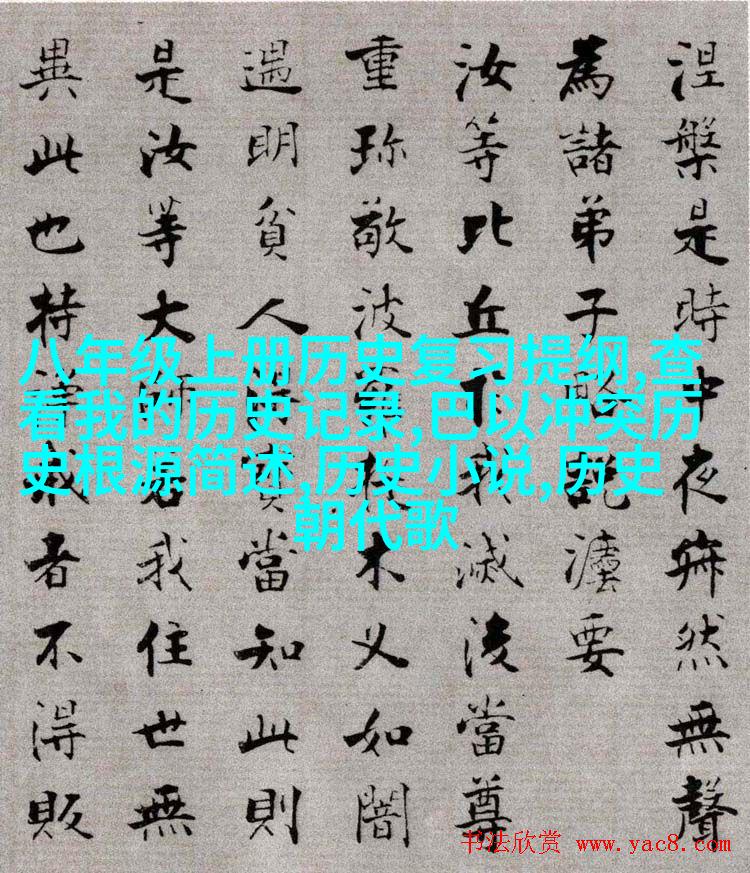 涅槃是時中夜寂然無聲
為諸弟子說法要
汝等比丘我滅後當尊
重珍敬波木叉如闇
遇明貧人當知此則
是汝等大師若我住世無
異此也持戒者不得販
八年级上册历史复习提纲,查
看我的历史记录,巴以冲突历
史根源简述,历史小说,历史
朝代歌
书法欣赏 www.yac8.com